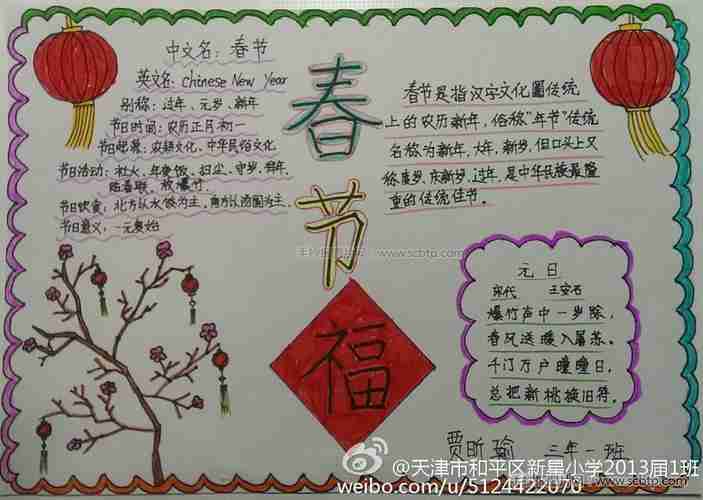 中文名：春节
英文名：Chinese New Year
别称：过年、元岁、新年
节日时间：农历正月初一
节日起源：农耕文化、中华民俗文化
节日活动：社火、年夜饭、扫尘、守岁、拜年、
贴春联、放爆竹
节日饮食：北方以水饺为主，南方以汤圆为主、
节日意义：一元复始
春节
福
春节是指汉字文化圈传统
上的农历新年，俗称"年节"传统
名称为新年、大年、新岁，但口头上又
称度岁、庆新岁、过年，是中华民族最隆
重的传统佳节。
元日
宋代 王安石
爆竹声中一岁除，
春风送暖入屠苏。
千门万户曈曈日，
总把新桃换旧符。
贾昕瑜 三年一班
www.scbtp.com
@天津市和平区新星小学2013届1班
weibo.com/u/5124422070
www.scbtp.com